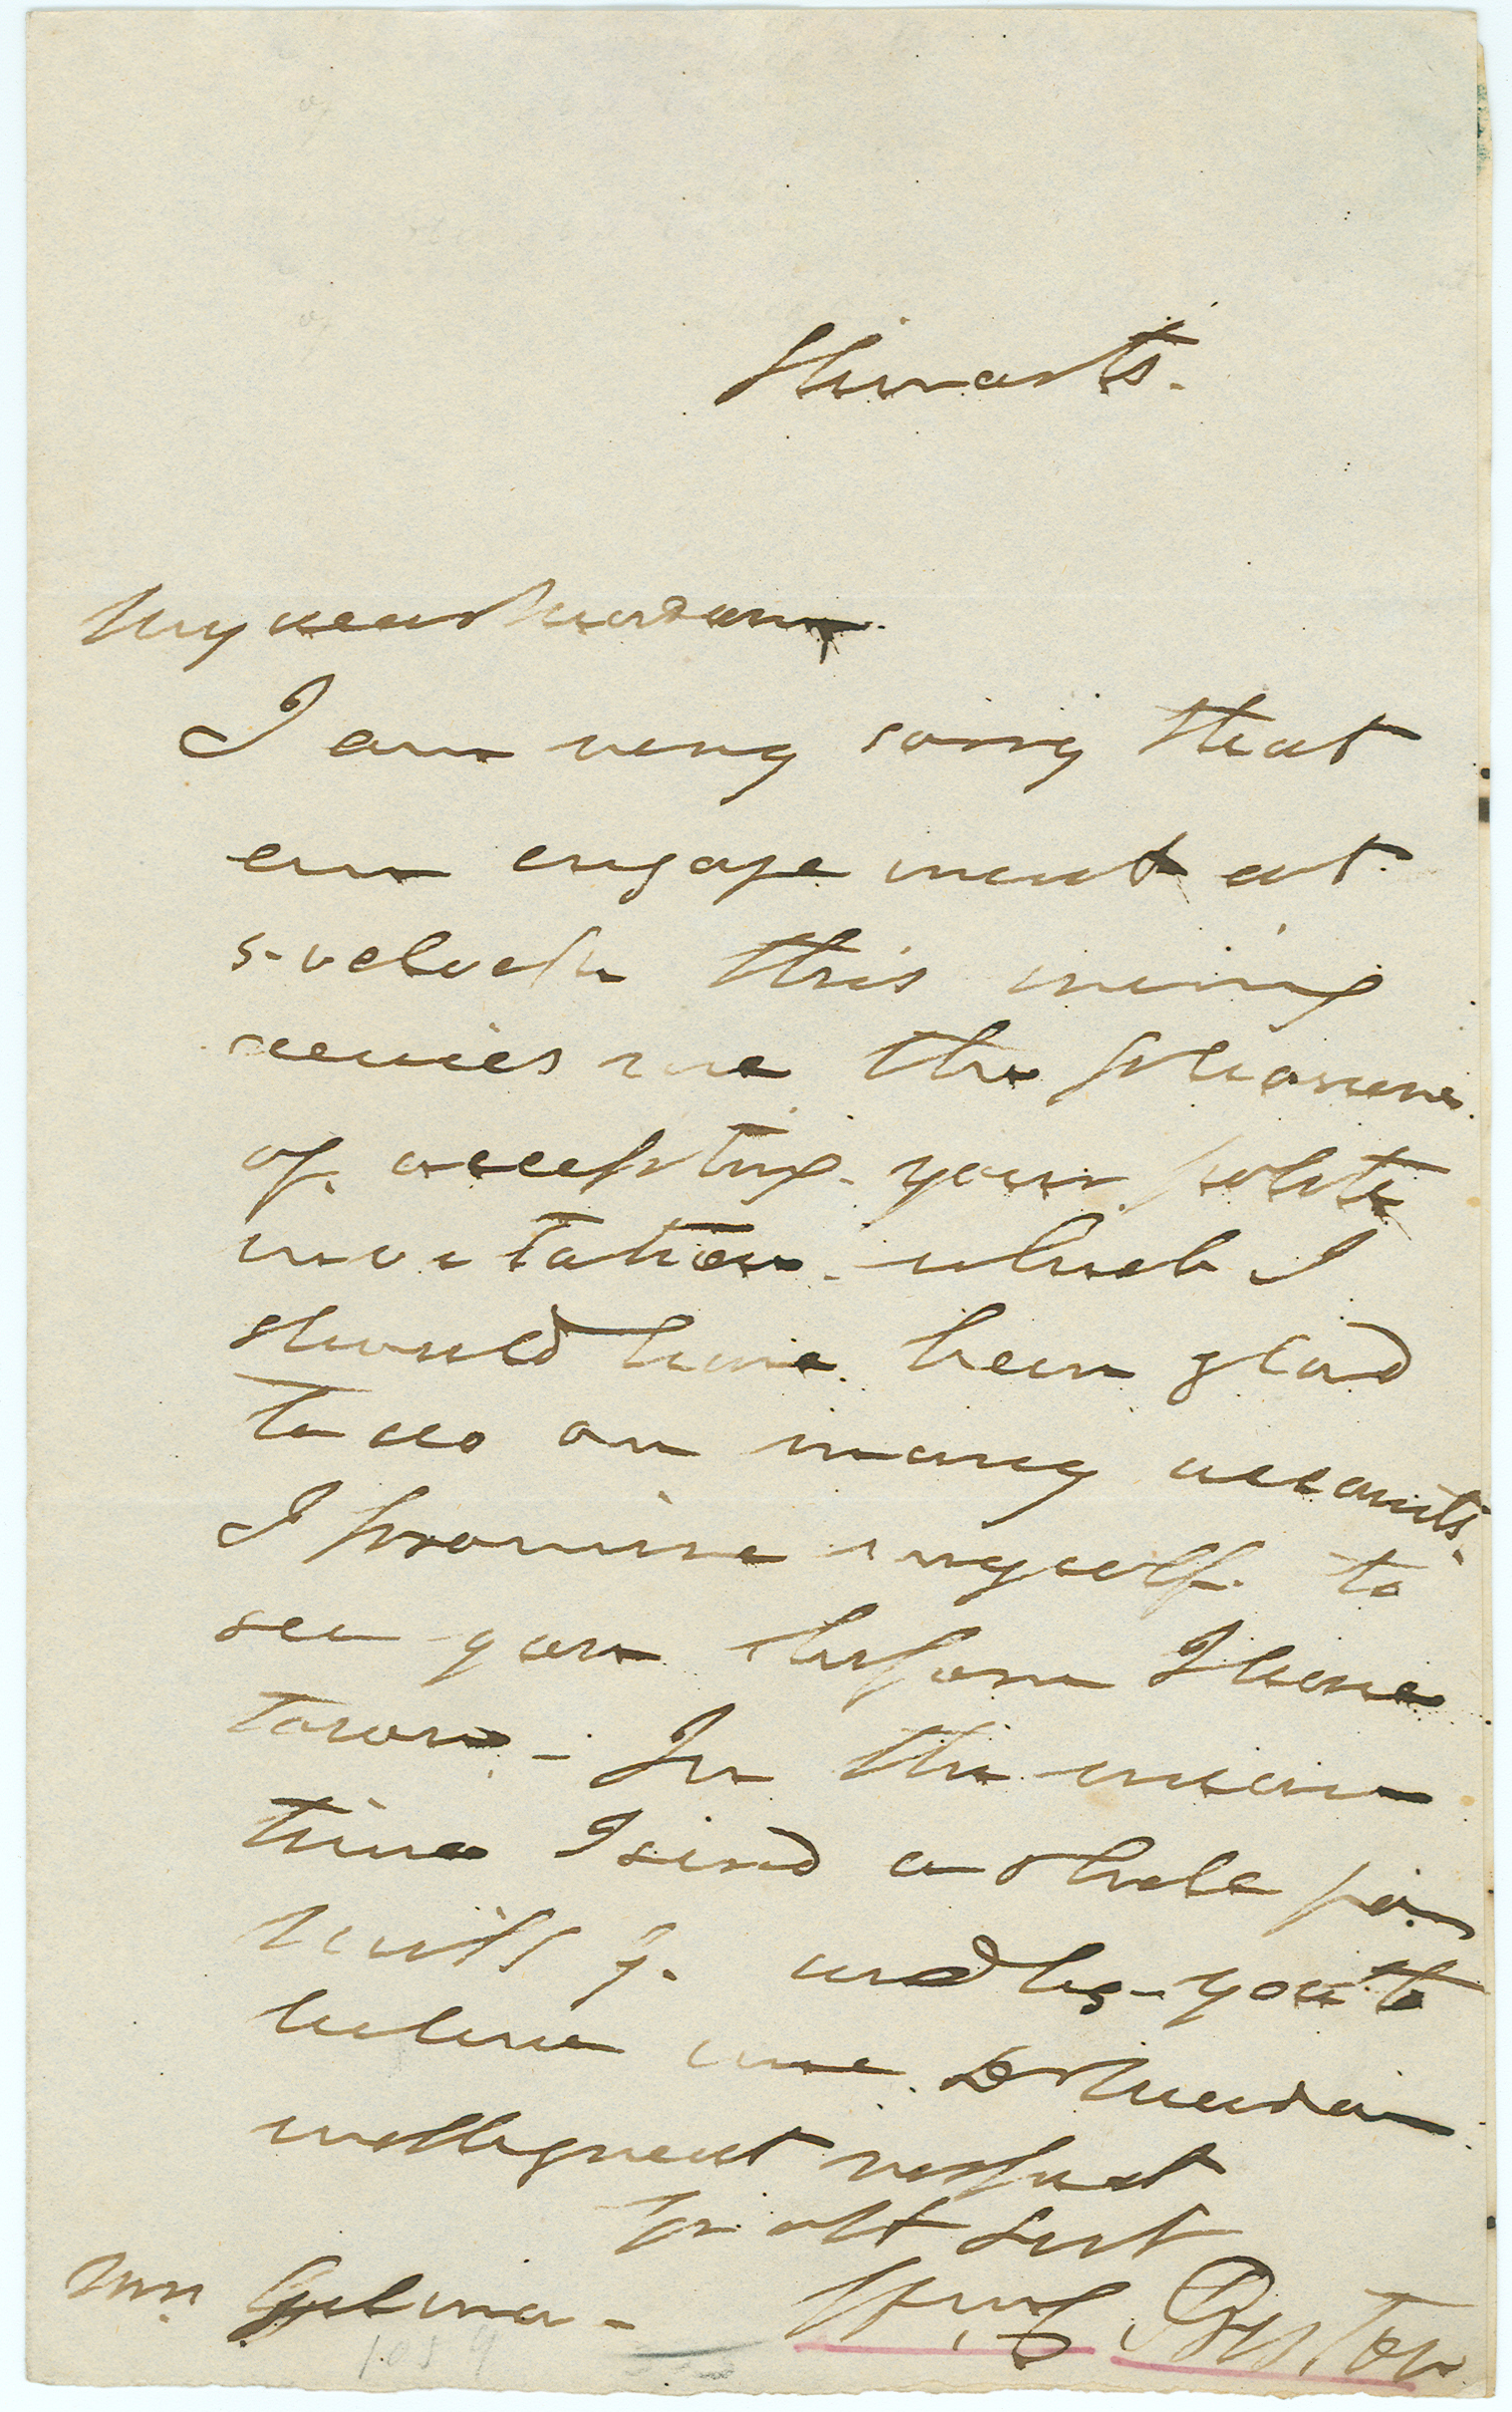 Stewarts.
My dear Madam.
I am very sorry that
an engagement at
5-oclock this evening
denies me the pleasure
of accepting your polite
invitation which I
should have been glad
to do on many accounts.
I promise myself to
see you before I leave
town - In the mean
time I send a
and beg you to
believe me Dr Madam
with great respect
Yr obt Sert
Mrs Gilman - Wm C. Preston
1059